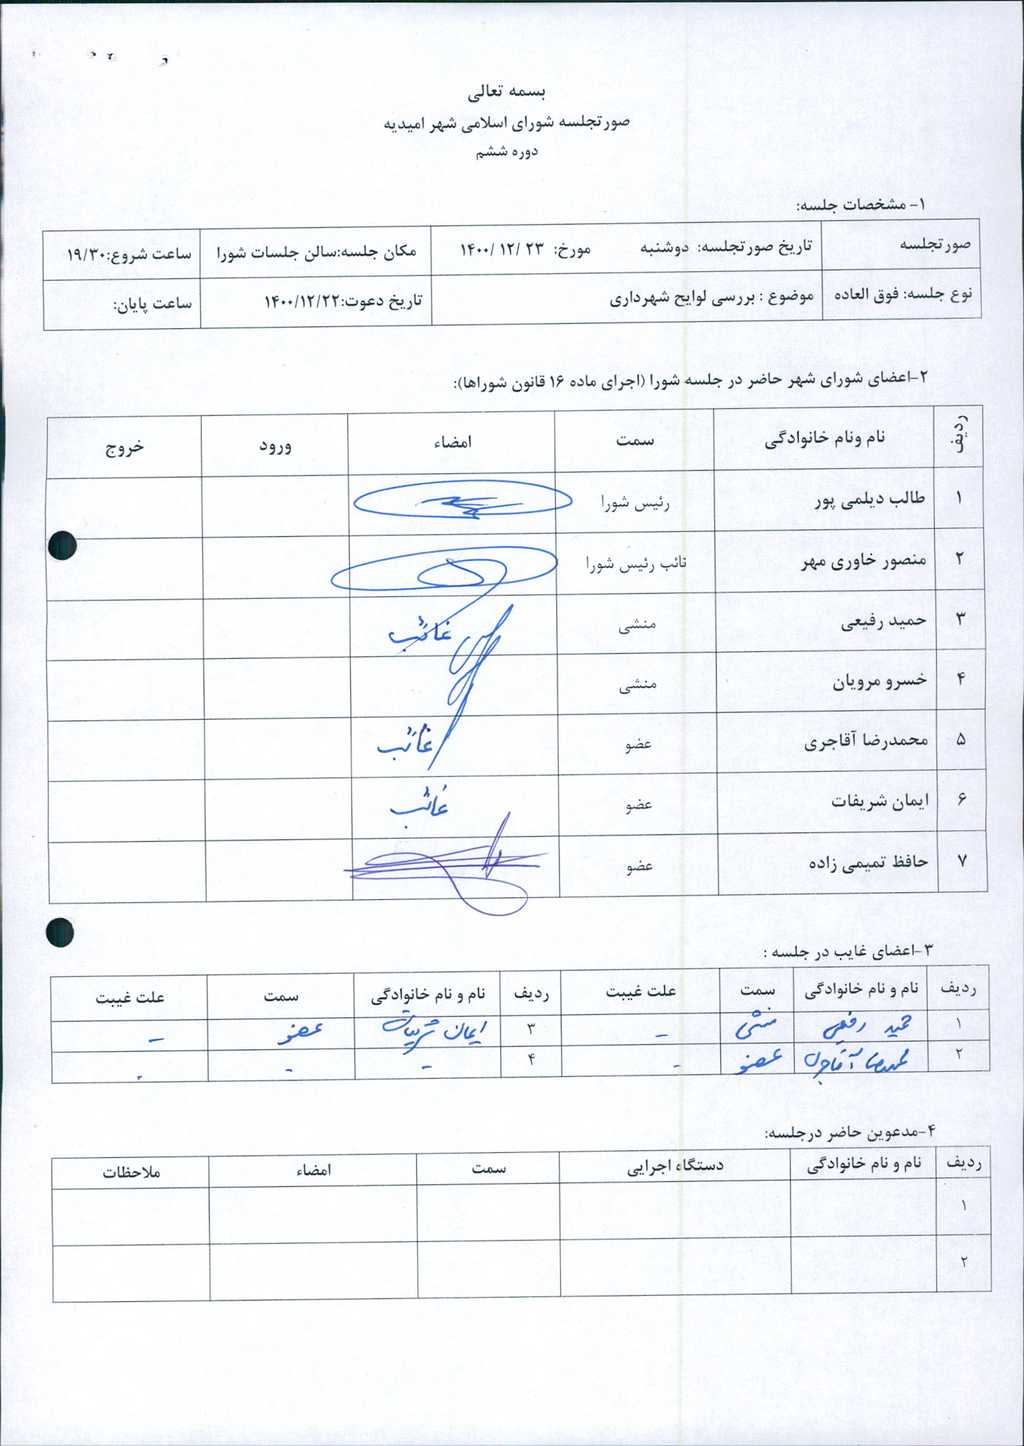 بسمه تعالی
صورتجلسه شورای اسلامی شهر امیدیه
دوره ششم
۱- مشخصات جلسه:
صورتجلسه تاریخ صورتجلسه: دوشنبه مورخ: ۲۳ /۱۲ /۱۴۰۰ مکان جلسه:سالن جلسات شورا ساعت شروع:۱۹/۳۰
نوع جلسه: فوق العاده موضوع : بررسی لوایح شهرداری تاریخ دعوت:۱۴۰۰/۱۲/۲۲ ساعت پایان:
۲-اعضای شورای شهر حاضر در جلسه شورا (اجرای ماده ۱۶ قانون شوراها):
ردیف نام ونام خانوادگی سمت امضاء ورود خروج
۱ طالب دیلمی پور رئیس شورا
۲ منصور خاوری مهر نائب رئیس شورا
۳ حمید رفیعی منشی غائب
۴ خسرو مرویان منشی
۵ محمدرضا آقاجری عضو غائب
۶ ایمان شریفات عضو غائب
۷ حافظ تمیمی زاده عضو
۳-اعضای غایب در جلسه :
ردیف نام و نام خانوادگی سمت علت غیبت ردیف نام و نام خانوادگی سمت علت غیبت
۱ حمید رفیعی منشی – ۳ ایمان شریفات عضو –
۲ محمدرضا آقاجری عضو - ۴ - - -
۴-مدعوین حاضر درجلسه:
ردیف نام و نام خانوادگی دستگاه اجرایی سمت امضاء ملاحظات
۱
۲